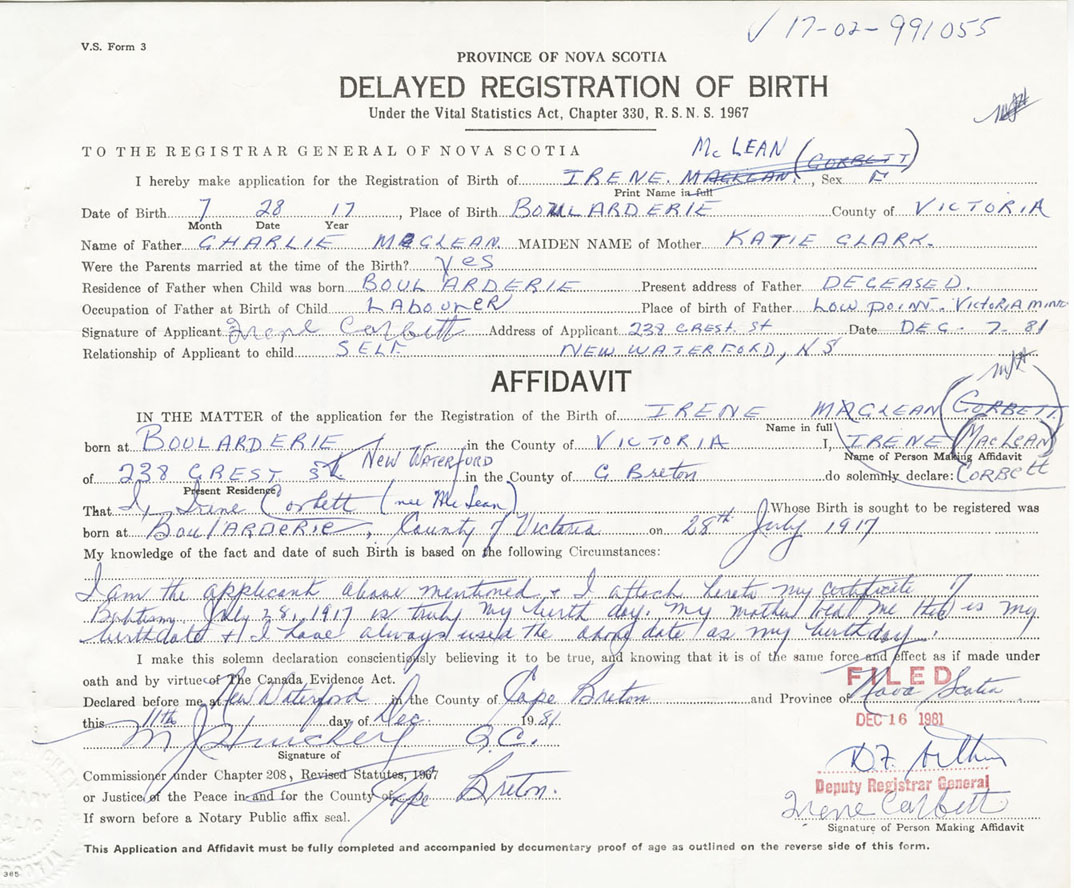 V.S. Form 3
17-02-991055
PROVINCE OF NOVA SCOTIA
DELAYED REGISTRATION OF BIRTH
Under the Vital Statistics Act, Chapter 330, R.S.N.S. 1967
TO THE REGISTRAR GENERAL OF NOVA SCOTIA
McLEAN (CORBETT)
I hereby make application for the Registration of Birth of IRENE MACLEAN, Sex F
Print Name in full
Date of Birth 7 28 17, Place of Birth BOULARDERIE County of VICTORIA
Month Date Year
Name of Father CHARLIE MACLEAN MAIDEN NAME of Mother KATIE CLARK.
Were the Parents married at the time of the Birth? yes
Residence of Father when Child was born BOULARDERIE Present address of Father DECEASED.
Occupation of Father at Birth of Child LABOURER Place of birth of Father LOW POINT. VICTORIA MINES
Signature of Applicant Irene Corbett Address of Applicant 238 CREST. St Date DEC. 7. 81
Relationship of Applicant to child SELF NEW WATERFORD, NS
AFFIDAVIT
IN THE MATTER of the application for the Registration of the Birth of IRENE MACLEAN CORBETT
Name in full
born at BOULARDERIE in the County of VICTORIA I, IRENE MACLEAN
Name of Person Making Affidavit
of 238 CREST St NEW WATERFORD in the County of C Breton do solemnly declare: CORBETT
Present Residence
That I, Irene Corbett (nee McLean) Whose Birth is sought to be registered was
born at Boularderie, County of Victoria on 28th July 1917
My knowledge of the fact and date of such Birth is based on the following Circumstances:
I am the applicant above mentioned & I attach hereto my certificate of
Baptism. July 28, 1917 is truly my birth day. My mother told me this is my
birthdate & I have always used the above date as my birthday.
I make this solemn declaration conscientiously believing it to be true, and knowing that it is of the same force and effect as if made under
oath and by virtue of The Canada Evidence Act.
FILED
Declared before me at New Waterford in the County of Cape Breton and Province of Nova Scotia
this 11th day of Dec. 1981
DEC 16 1981
Q.C.
Signature of
Commissioner under Chapter 208, Revised Statutes, 1967
Deputy Registrar General
or Justice of the Peace in and for the County of Cape Breton.
Irene Corbett
If sworn before a Notary Public affix seal.
Signature of Person Making Affidavit
This Application and Affidavit must be fully completed and accompanied by documentary proof of age as outlined on the reverse side of this form.
365